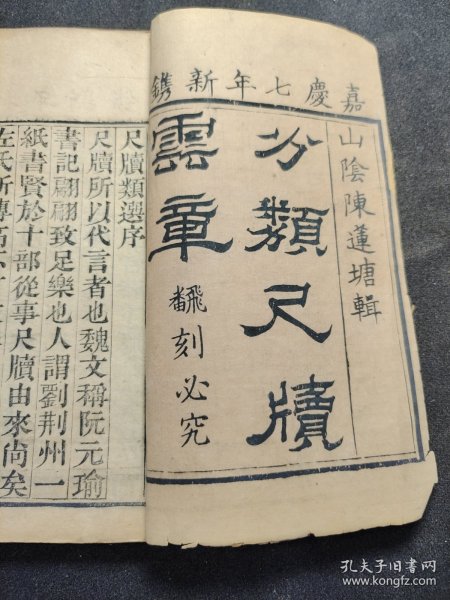 嘉慶七年新鐫
山陰陳蓮塘輯
分類尺牘
雲章
飜刻必究
尺牘類選序
尺牘所以代言者也魏文稱阮元瑜
書記翩翩致足樂也人謂劉荊州一
紙書賢於十部從事尺牘由來尚矣
左氏所傳
孔夫子旧书网
www.kongfz.com